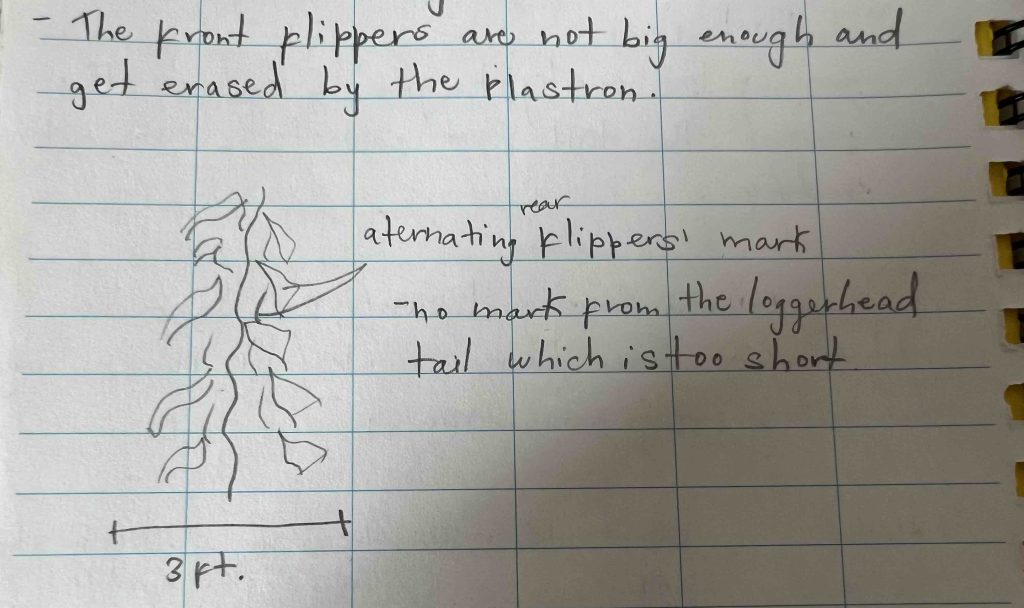 - The front flippers are not big enough and
get erased by the plastron.
rear
aternating flippers' mark
-no mark from the loggerhead
tail which is too short.
3 ft.